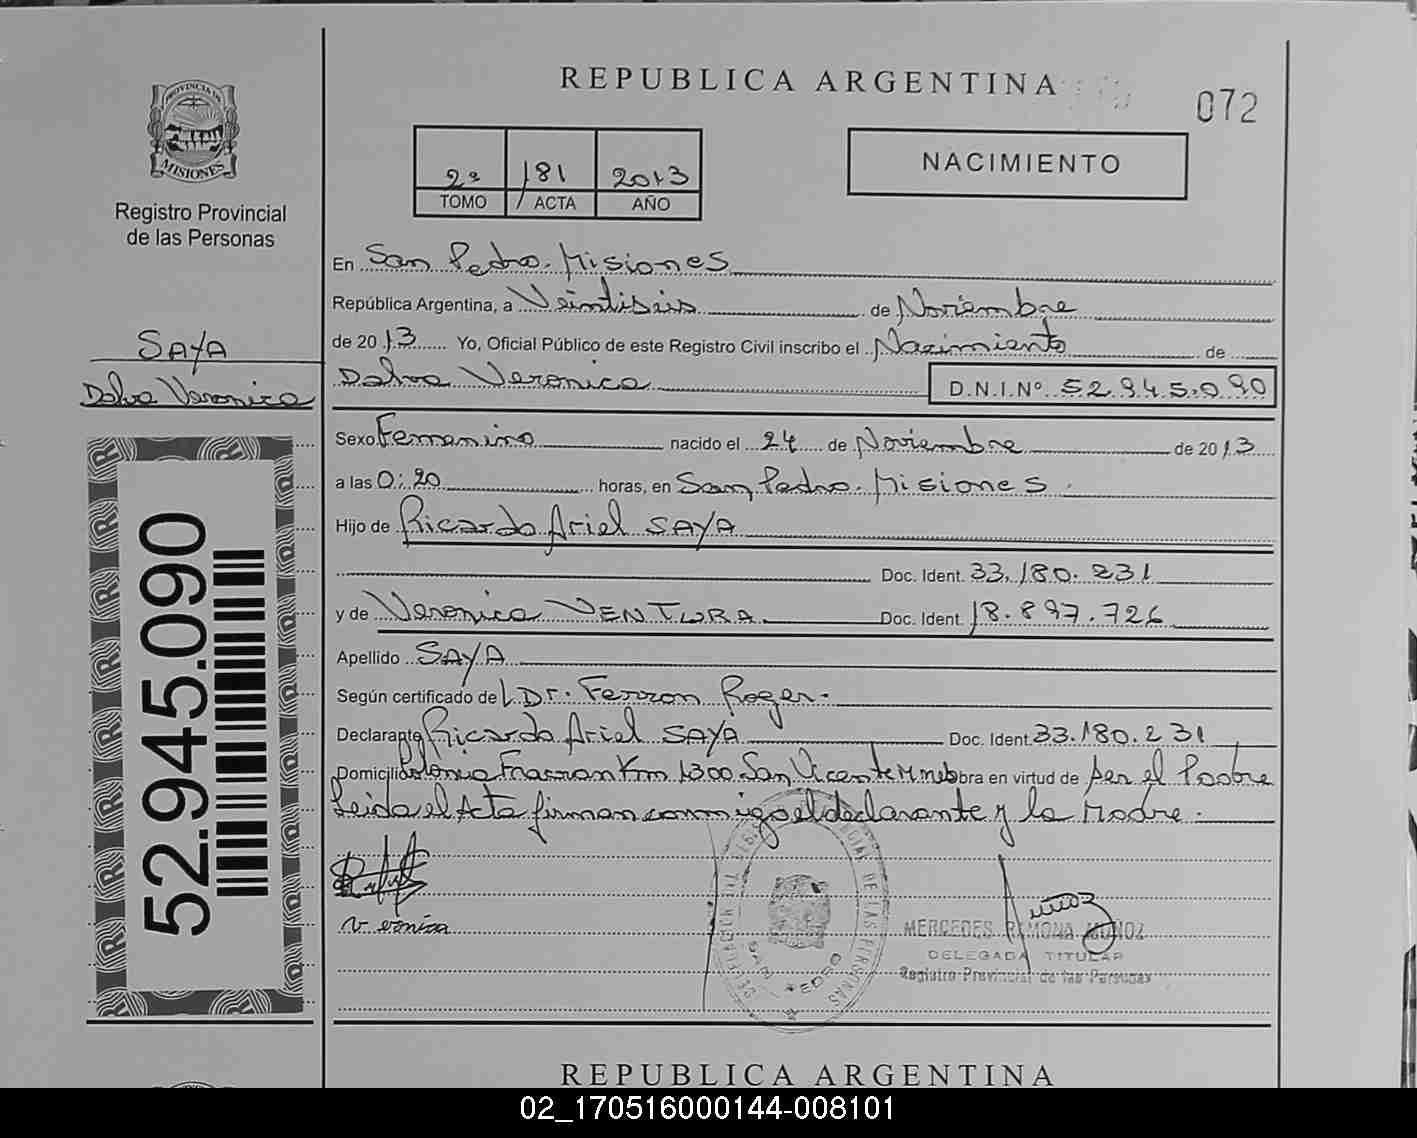 REPUBLICA ARGENTINA
072
PROVINCIA DE
MISIONES
Registro Provincial
de las Personas
2º 181 2013
TOMO ACTA AÑO
NACIMIENTO
En San Pedro. Misiones
República Argentina, a Veintiseis de Noviembre
de 2013 Yo, Oficial Público de este Registro Civil inscribo el Nacimiento de
Dalva Veronica D.N.I.Nº 52.945.090
SAYA
Dalva Veronica
52.945.090
Sexo Femenino nacido el 24 de Noviembre de 2013
a las 0:20 horas, en San Pedro. Misiones.
Hijo de Ricardo Ariel SAYA
Doc. Ident. 33.180.231
y de Veronica VENTURA Doc. Ident. 18.897.726
Apellido SAYA
Según certificado del Dr. Ferron Roger.
Declarante Ricardo Ariel SAYA Doc. Ident. 33.180.231
Domicilio Colonia Fracran Km 1300 San Vicente Mnes obra en virtud de ser el Padre
Leida el Acta firman conmigo el declarante y la Madre.
veronica
SAN PEDRO
DE LAS PERSONAS
MERCEDES RAMONA MUÑOZ
DELEGADA TITULAR
Registro Provincial de las Personas
REPUBLICA ARGENTINA
02_170516000144-008101